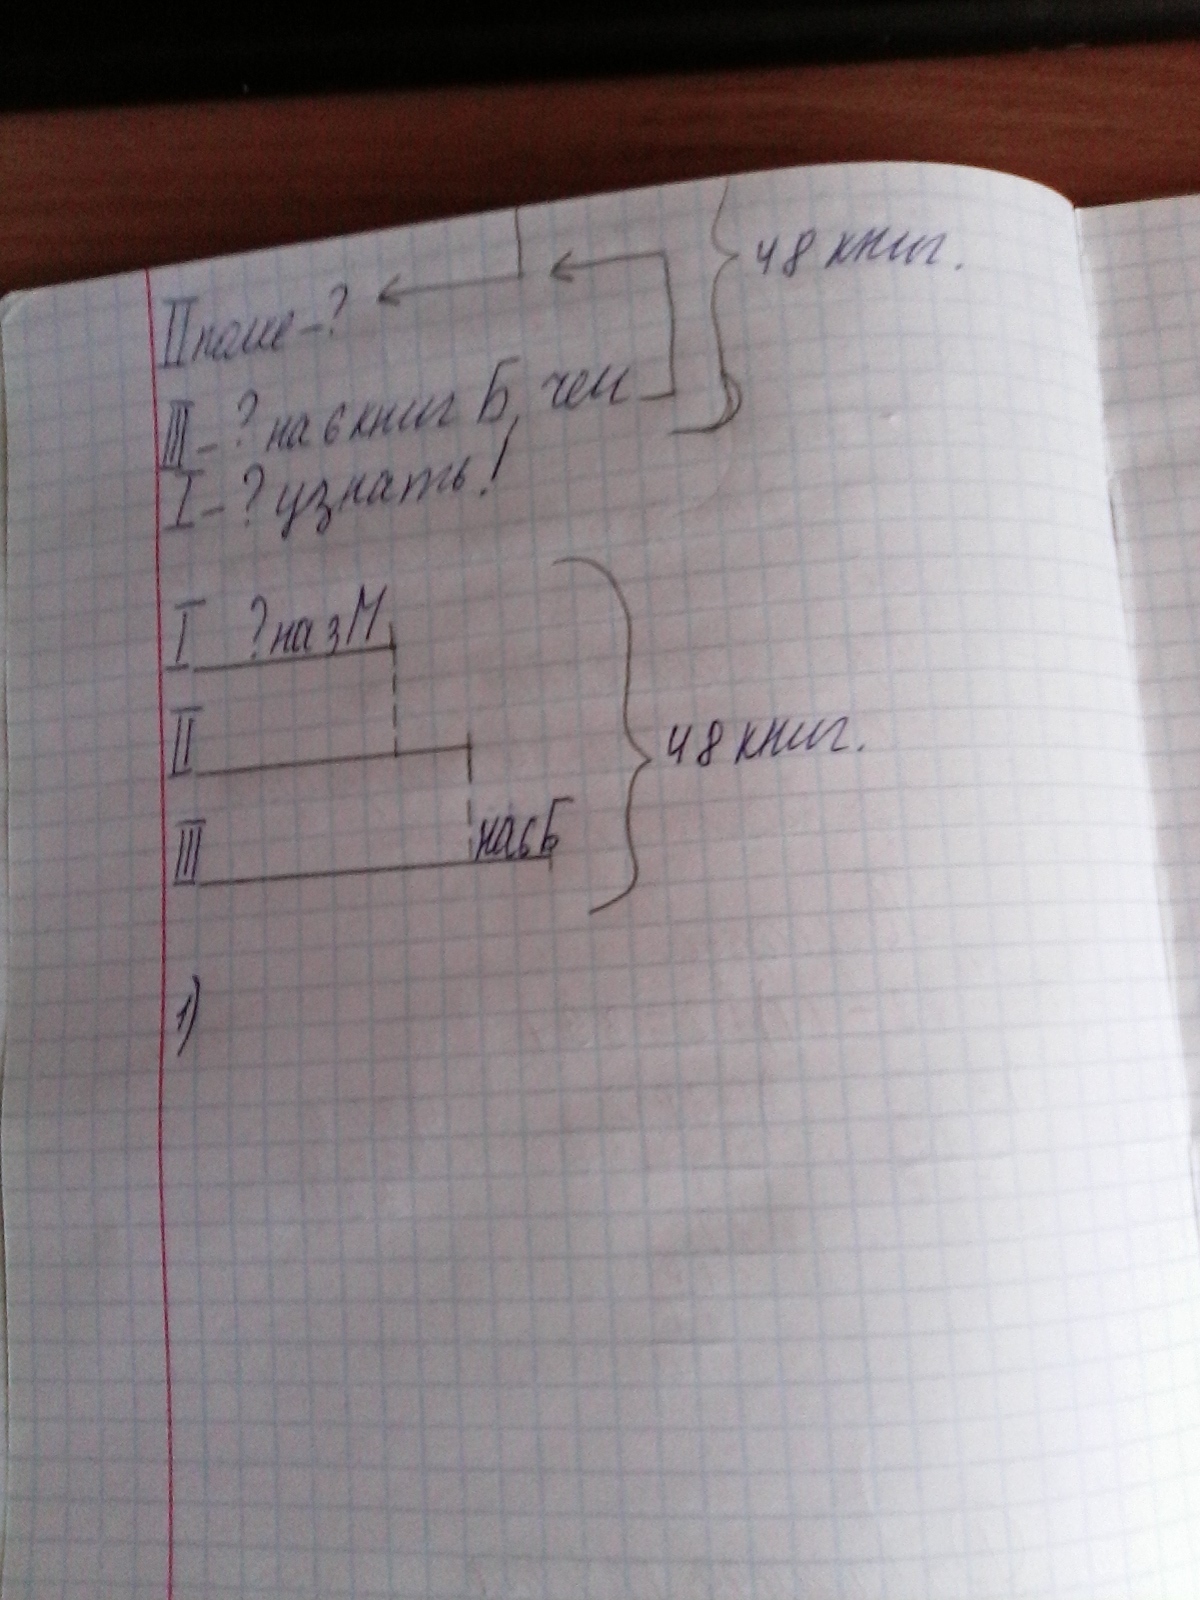 II полке - ?
48 книг.
III - ? на 6 книг Б, чем
I - ? узнать!
I ? на 3 М
II
48 книг.
III на 6 Б
1)